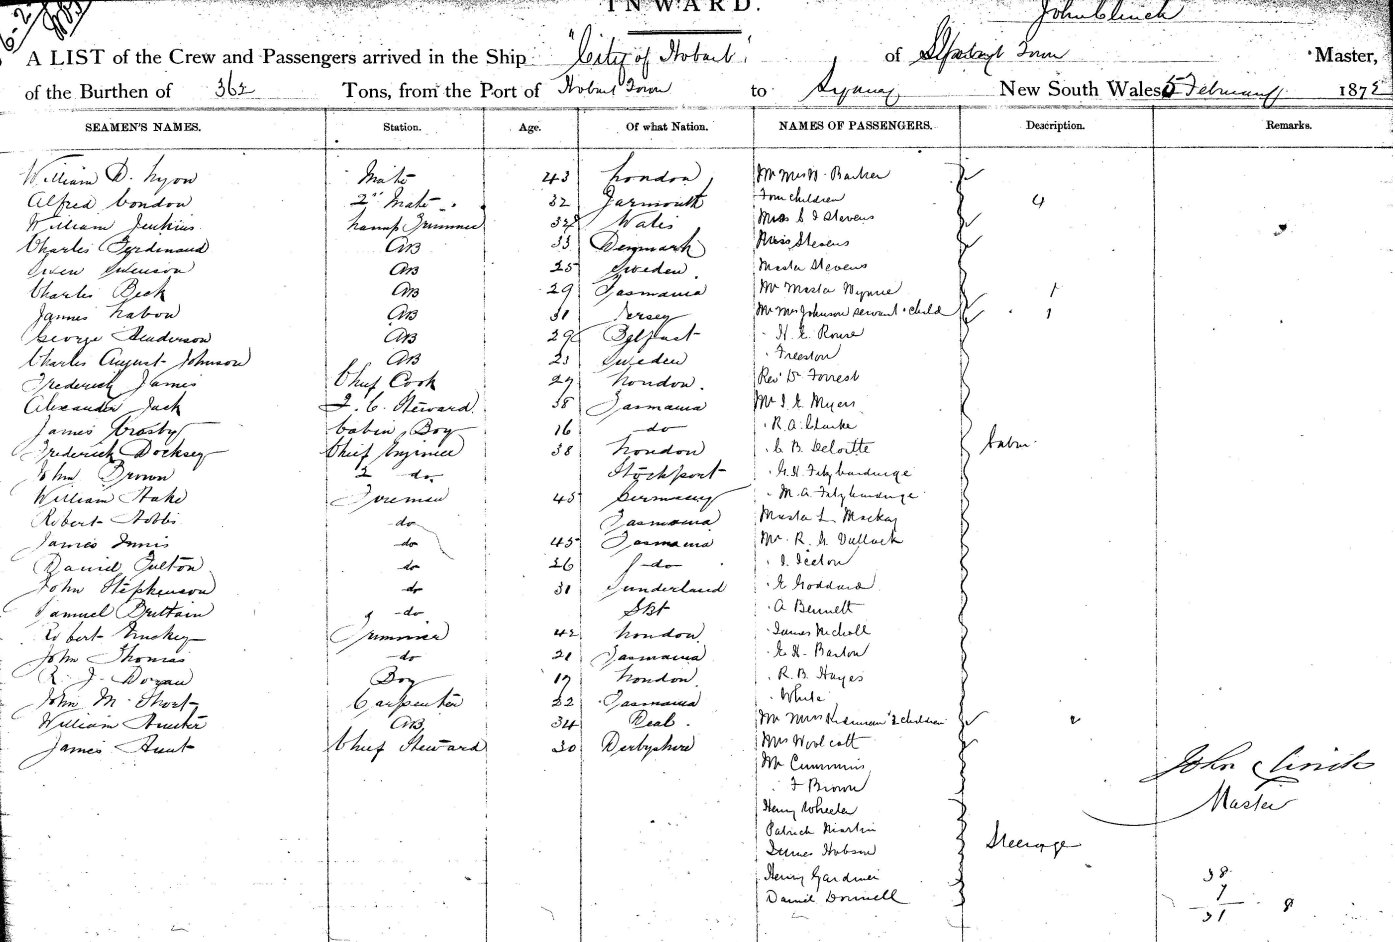 INWARD.
John Clinch
A LIST of the Crew and Passengers arrived in the Ship "City of Hobart" of Hobart Town Master,
of the Burthen of 362 Tons, from the Port of Hobart Town to Sydney New South Wales 5 February 1872
SEAMEN'S NAMES. Station. Age. Of what Nation. NAMES OF PASSENGERS. Description. Remarks.
William D. Lyon Mate 43 London Mr Mrs W. Barker
Alfred Condon 2nd Mate 32 Yarmouth Four children 4
William Jenkins Lamp Trimmer 34 Wales Miss Stevens
Charles Ferdinand AB 33 Denmark Miss Stevens
Swen Swenson AB 25 Sweden Master Stevens
Charles Beck AB 29 Tasmania Mr Master Wynne 1
James Labou AB 31 Jersey Mr Mrs Johnson servant & child 1
George Henderson AB 29 Belfast H. E. Rouse
Charles August Johnson AB 23 Sweden Freeston
Frederick James Chief Cook 27 London. Revd Dr Forrest
Alexander Jack 2. C. Steward 38 Tasmania Mr I E Myers
James Crosby Cabin Boy 16 do R. A. Clarke
Frederick Docksey Chief Engineer 38 London C B. Deloitte Cabin
John Brown 2 do. Stockport G. H. Fitzhardinge
William Hake Fireman 45 Germany M. A. Fitzhardinge
Robert Hobbs do Tasmania Master L. Mackay
James Innis do 45 Tasmania Mr. R. G. Vallack
Daniel Fulton do 26 do I. Iceton
John Stephenson do 31 Sunderland E Goddard
Samuel Brittain do HBt A Bennett
Robert Trimmer 42 London James Nicholl
John Thomas do 21 Tasmania E H. Barton
R. J. Doran Boy 17 London R. B. Hayes
John M. Short Carpenter 22 Tasmania White
William Hunter AB 34 Deal. Mr Mrs 2 children 2
James Hunt Chief Steward 30 Derbyshire Mrs Woolcott
Mr Cummins
F Brown
Henry Wheeler
Patrick Martin
James Hobson Steerage
Henry Gardner
Daniel Donnell
John Clinch
Master
38
7
31 8